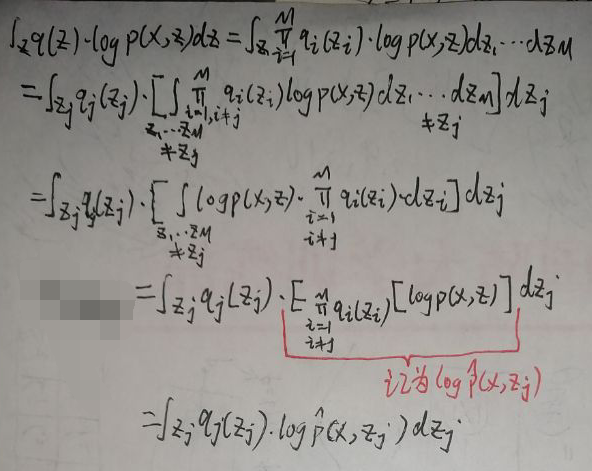 ∫_z q(z)·log p(x,z)dz = ∫_z ∏_{i=1}^{M} q_i(z_i)·log p(x,z)dz_1…dz_M
= ∫_{z_j} q_j(z_j)·[∫_{z_1…z_M ≠z_j} ∏_{i=1,i≠j}^{M} q_i(z_i) log p(x,z) dz_1…dz_M ≠z_j] dz_j
= ∫_{z_j} q_j(z_j)·[∫_{z_1…z_M ≠z_j} log p(x,z)·∏_{i=1 i≠j}^{M} q_i(z_i)·dz_i] dz_j
= ∫_{z_j} q_j(z_j)·E_{∏_{i=1 i≠j}^{M} q_i(z_i)}[log p(x,z)] dz_j
记为 log p̂(x,z_j)
= ∫_{z_j} q_j(z_j)·log p̂(x,z_j) dz_j